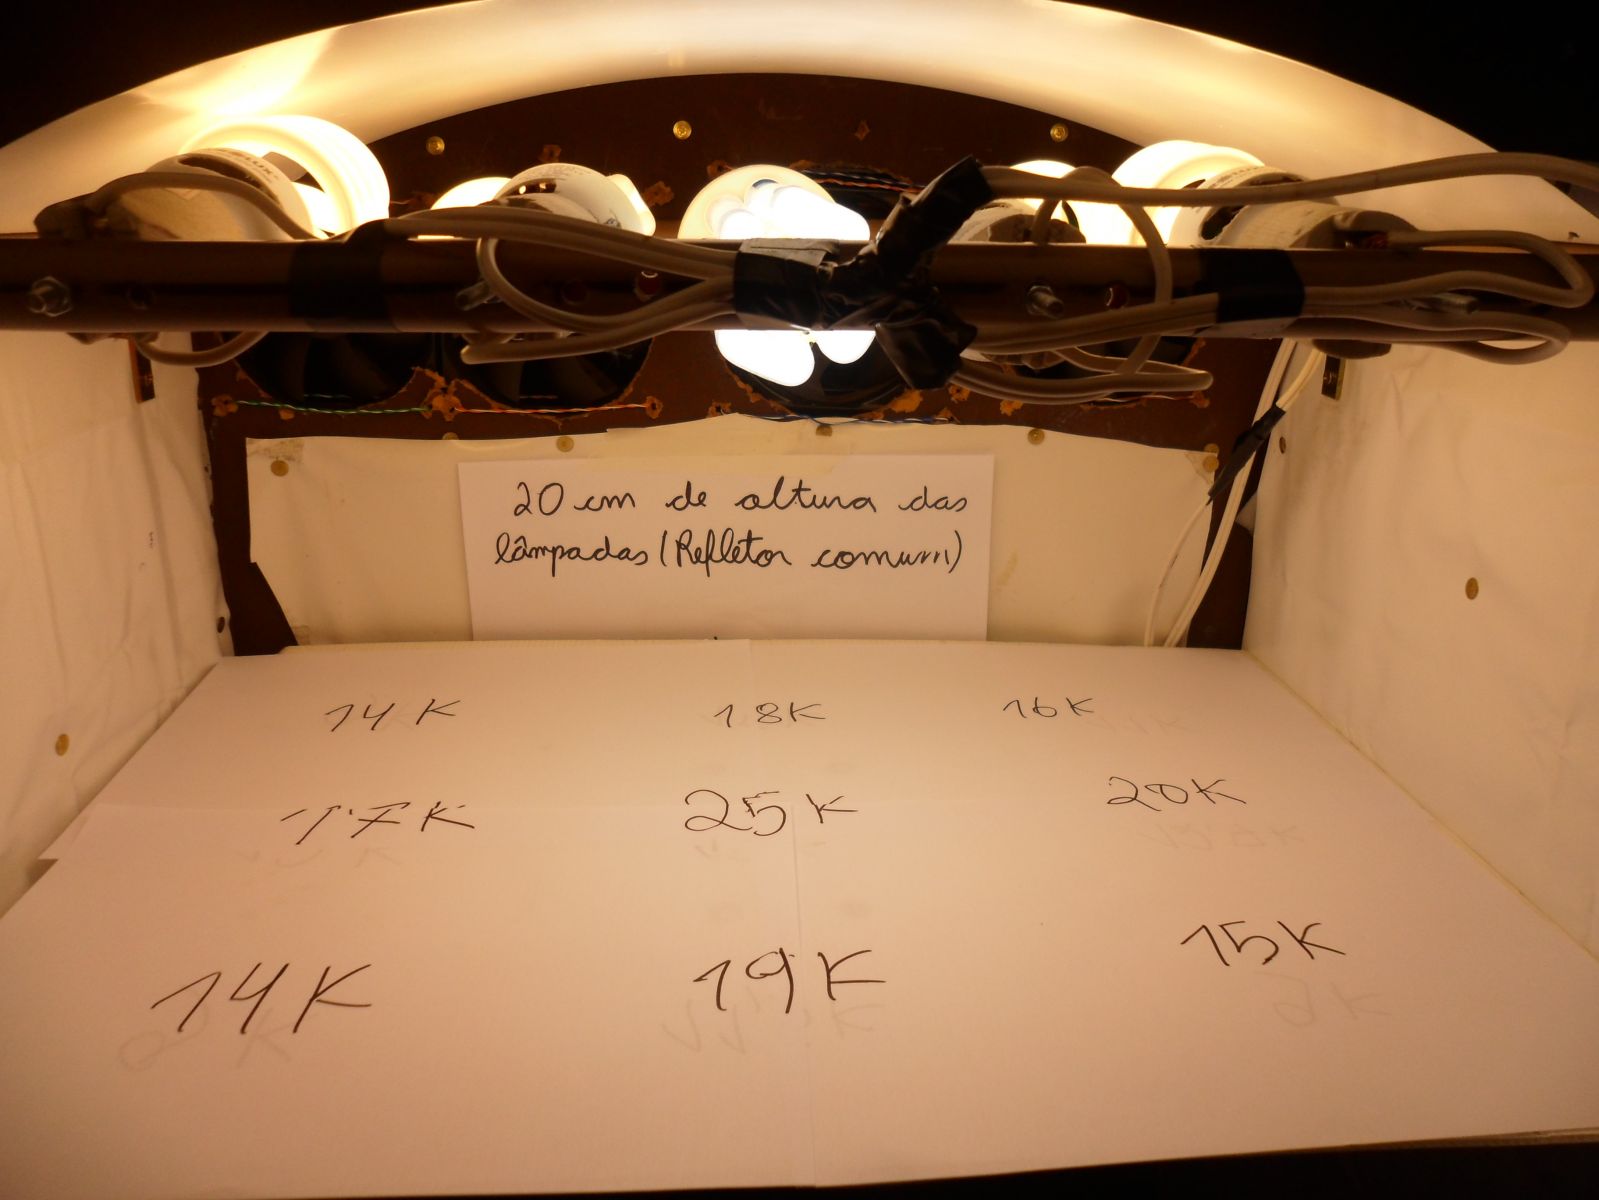 20 cm de altura das
lâmpadas (Refletor comum)
14K 18K 16K
17K 25K 20K
14K 19K 15K